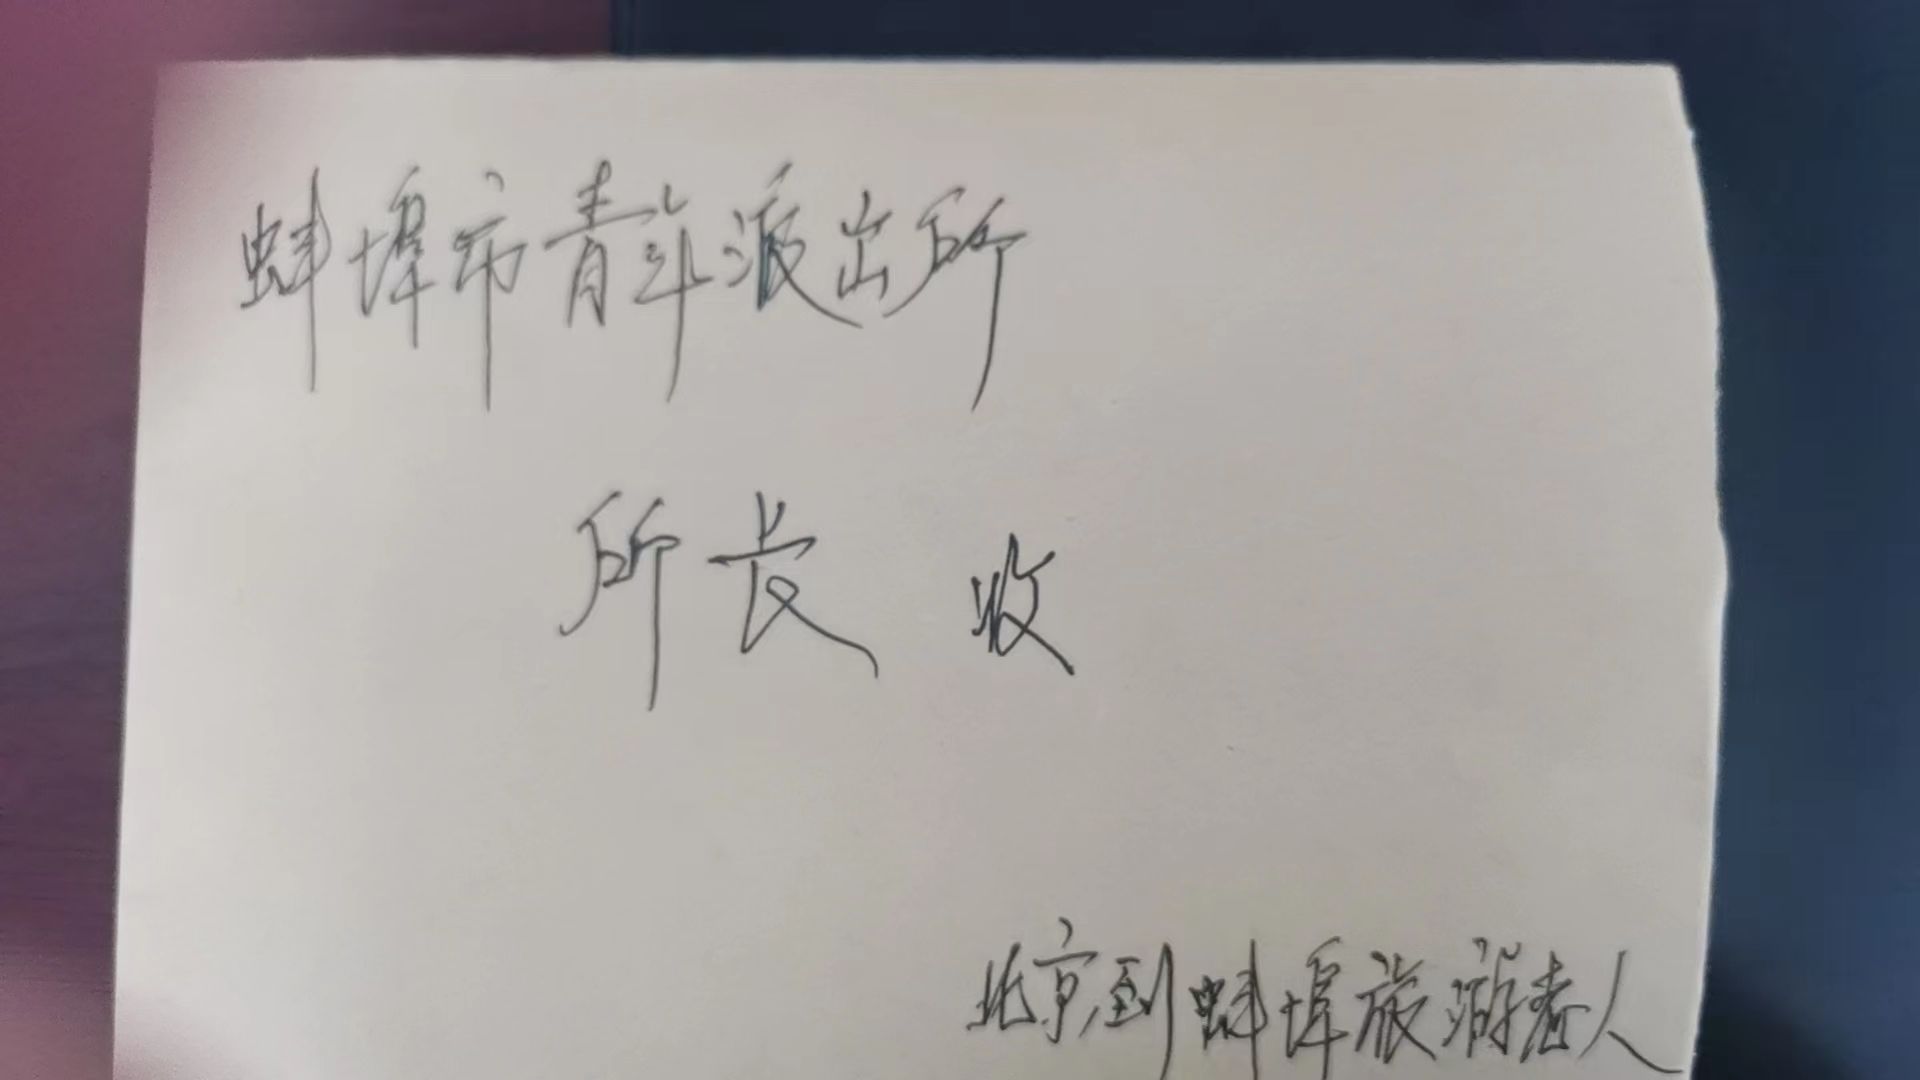 蚌埠市青年派出所
所长 收
北京到蚌埠旅游老人